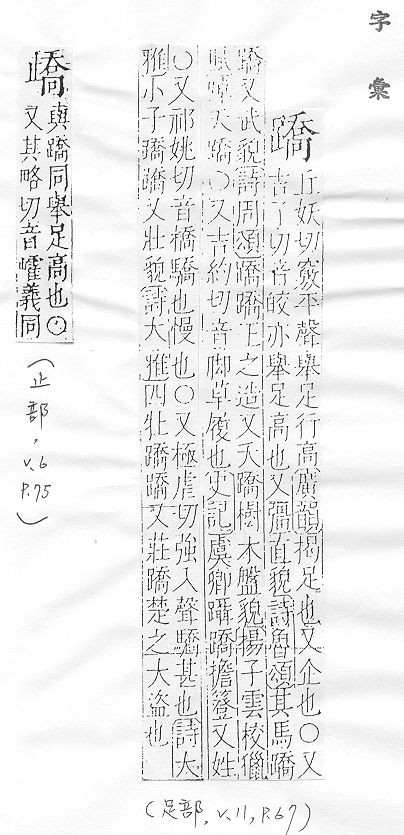 字彙
蹻
丘妖切竅平聲舉足行高廣韻揭足也又企也○又
吉了切音皎亦舉足高也又彊直貌詩魯頌其馬蹻
蹻又武貌詩周頌蹻蹻王之造又夭蹻樹木盤貌揚子雲校獵
賦夭蹻○又吉約切音脚草履也史記虞卿躡蹻擔簦又姓
○又祁姚切音橋驕也慢也○又極虐切強入聲驕甚也詩大
雅小子蹻蹻又壯貌詩大雅四牡蹻蹻又莊蹻楚之大盜也
(足部, v.11, P.67)
與蹻同舉足高也○
又其略切音義同
(止部, v.6 P.75)